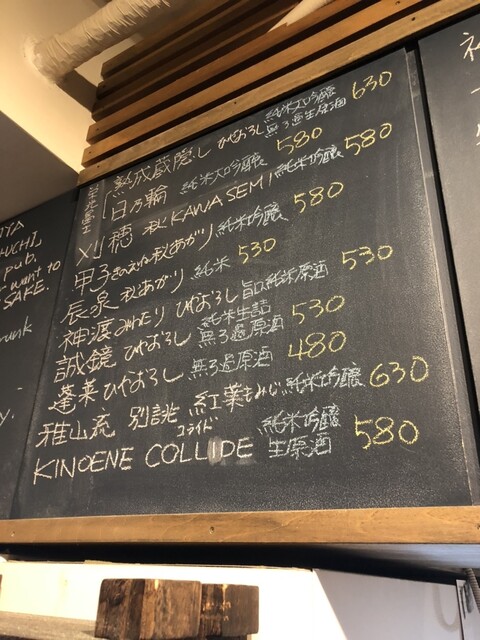 熟成蔵隠し ひやおろし 純米大吟醸 無ろ過生原酒 630
日乃輪 純米大吟醸 580
刈穂 秋 KAWASEMI 純米吟醸 580
甲子 きのえね 秋あがり 純米吟醸 580
辰泉 秋あがり 純米 530
神渡 みわたり ひやおろし 旨口純米原酒 530
誠鏡 ひやおろし 純米生詰 無ろ過原酒 530
蓬莱 ひやおろし 無ろ過原酒 480
雅山流 別誂 紅葉 もみじ 純米大吟醸 630
KINOENE COLLIDE コライド 純米吟醸 生原酒 580
YA
UCHI,
pub.
want to
SAKE.
runk
y.